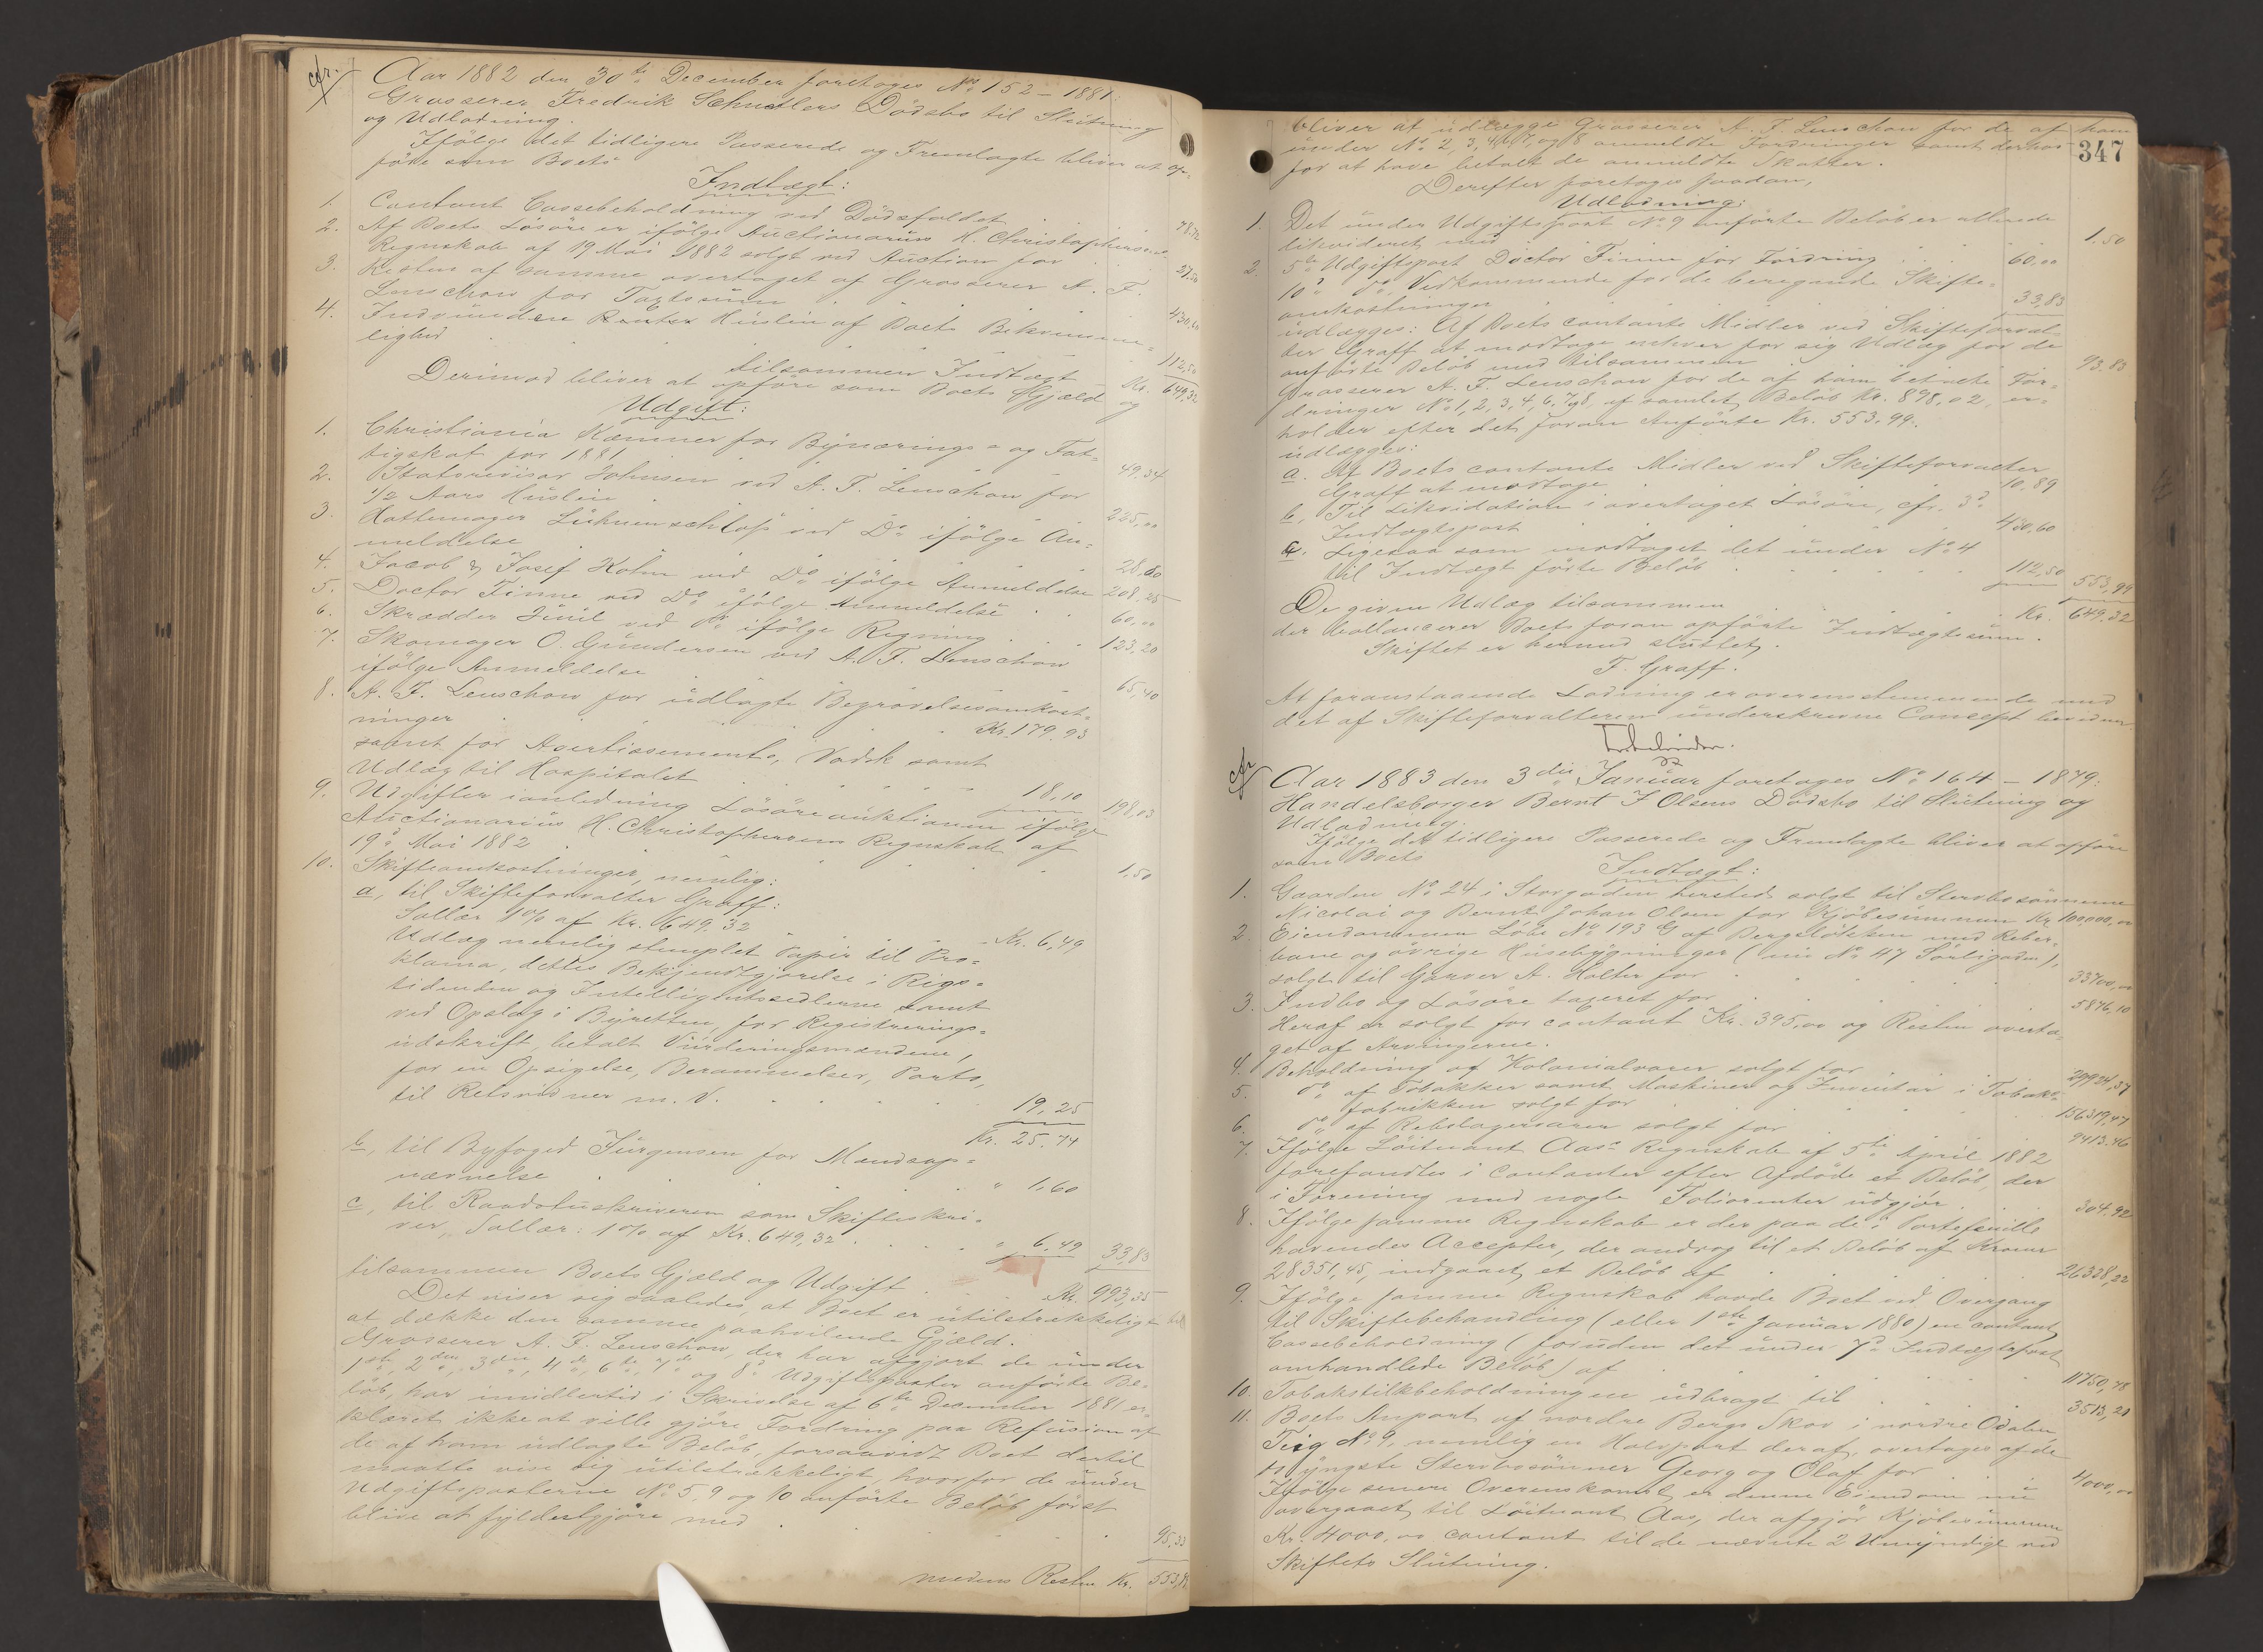 cfr.
Aar 1882 den 30te December foretoges No 152 - 1881:
Grosserer Fredrik Schnetlers Dödsbo til Slutning
og Udlodning.
Ifölge det tidligere Passerede og Fremlagte bliver at op-
före som Boets
Indtægt:
1. Contant Cassebeholdning ved Dödsfaldet . 78.72
2. Af Boets Lösöre er ifölge Auctionarius H. Christophersens
Regnskab af 19 Mai 1882 solgt ved Auction for . 27,50
3. Resten af samme overtaget af Grosserer A. F.
Lenschow for Taxtsum . 430,60
4. Indvunden Husleie af Boets Bekvemme-
lighed . 112,50
tilsammen Indtægt Kr. 649,32
Derimod bliver at opföre som Boets Gjæld og
Udgift:
1. Christiania Kæmner for Bynærings- og Fat-
tigskat for 1881 49,34
2. Statsrevisor Johnsen ved A. F. Lenschow for
1/2 Aars Husleie . 225,00
3. Hattemager Lühnenschloss ved Do ifölge An-
meldelse . 28,60
4. Jacob & Josef Kohn ved Do ifölge Anmeldelse 208.25
5. Doctor Finne ved Do ifölge Anmeldelse . 60,00
6. Skrædder Juul ved Do ifölge Regning . 123,20
7. Skomager O. Gundersen ved A. F. Lenschow
ifölge Anmeldelse . 65,40
8. A. F. Lenschow for udlagte Begravelsesomkost-
ninger . Kr. 179.93
samt for Avertissements, Vadsk samt
Udlæg til Hospitalet . 18,10 198,03
9. Udgifter i anledning Lösöreauktionen ifölge
Auctionarius H. Christophersens Regnskab af
19de Mai 1882 . 1,50
10. Skifteomkostninger, nemlig:
a, til Skifteforvalter Graff:
Sallær 1% af Kr. 649.32 . Kr. 6,49
Udlæg nemlig stemplet Papir til Pro-
klama, dettes Bekjendtgjörelse i Rigs-
tidenden og Intelligentssedlerne samt
ved Opslag i Byretten, for Registrerings-
udskrift, betalt Vurderingsmændene,
for en Opsigelse, Berammelser, Porto,
til Retsvidner m. V. . 19,25
Kr. 25.74
b, til Byfoged Jürgensen for Mændsop-
nævnelse . " 1,60
c, til Raadstuskriveren som Skifteskri-
ver, Sallær: 1% af Kr. 649,32 . " 6,49 33,83
tilsammen Boets Gjæld og Udgift . Kr. 993,35
Det viser sig saaledes, at Boet er utilstrækkeligt til
at dække den samme paahvilende Gjæld.
Grosserer A. F. Lenschow, der har afgjort de under
1ste, 2den, 3die, 4de, 6te, 7de og 8de Udgiftsposter anförte Be-
löb, har imidlertid i Skrivelse af 6te December 1881 er-
klæret ikke at ville gjöre Fordring paa Refusion af
de af ham udlagte Belöb, forsaavidt Boet dertil
maatte vise sig utilstrækkeligt, hvorfor de under
Udgiftsposterne No 5, 9 og 10 anförte Belöb först
blive at fyldestgjöre med . 95,33
medens Resten Kr. 553,99
347
bliver at udlægge Grosserer A. F. Lenschow for de af ham
under No 2, 3, 4, 6, 7, og 8 anmeldte Fordringer samt derhos
for at have betalt de anmeldte Skatter.
Derefter foretoges saadan,
Udlodning:
1. Det under Udgiftspost No 9 anförte Belöb er allerede
likvideret med . 1.50
2. 5te Udgiftspost Doctor Finne for Fordring . 60,00
10de do Vedkommende for de beregnede Skifte-
omkostninger 33,83
udlægges: Af Boets contante Midler ved Skifteforval-
ter Graff at modtage enhver for sig Udlæg for de
anförte Belöb med tilsammen . 93.83
Grosserer A. F. Lenschow for de af ham betalte For-
dringer No 1, 2, 3, 4, 6, 7, 8, af samlet Belöb Kr. 898,02, er-
holder efter det foran Anförte Kr. 553.99.
udlægges:
a. Af Boets contante Midler ved Skifteforvalter
Graff at modtage . 10,89
b, Til Likvidation i overtaget Lösöre, cfr. 3de
Indtægtspost . 430,60
c. Ligesaa som modtaget det under No 4
til Indtægt förte Belöb . 112,50 553,99
De given Udlæg tilsammen . Kr. 649.32
der ballancerer Boets foran opförte Indtægtssum.
Skiftet er hermed sluttet.
F. Graff.
At foranstaaende Lodning er overensstemmende med
det af Skifteforvalteren underskrevne Concept bevidner
cfr
Aar 1883 den 3die Januar foretoges No 164 - 1879:
Handelsborger Bernt J Olsens Dödsbo til Slutning og
Udlodning.
Ifölge det tidligere Passerede og Fremlagte bliver at opföre
som Boets
Indtægt:
1. Gaarden No 24 i Storgaden hersteds solgt til Stervbosönnerne
Nicolai og Bernt Johan Olsen for Kjöbesummen Kr. 100,000,00
2. Eiendommen Lökke No 193 G af Bergslökken med Reber-
bane og övrige Husebygninger (nu No 47 Sorligaden),
solgt til Garver A. Holter for . 33700,00
3. Indbo og Lösöre taxeret for . 5876,10
Heraf er solgt for contant Kr. 395,00 og Resten overta-
get af Arvingerne.
4. Beholdning af Kolonialvarer solgt for . 29924,37
5. do af Tobakker samt Maskiner og Inventar i Tobaks-
fabrikken solgt for . 156319,47
6. do af Rebslagervarer solgt for . 9413.46
7. Ifölge Löitnant Aas's Regnskab af 5te April 1882
forefandtes i Contanter efter Afdöde et Belöb, der
i Forening med nogle Folierenter udgjör . 304,92
8. Ifölge samme Regnskab er der paa de i Portefeuille
havendes Accepter, der androg til et Belöb af Kroner
28351,45, indgaaet et Belöb af . 26328,22
9. Ifölge samme Regnskab havde Boet ved Overgang
til Skiftebehandling (eller 1ste Januar 1880) en contant
Cassebeholdning (foruden det under 7de Indtægtspost
omhandlede Belöb) af . 11750,48
10. Tobakstilkbeholdningene udbragt til . 3513,21
11. Boets Anpart af nordre Bergs Skov i nordre Odalen,
Teig No 9, nemlig en Halvpart deraf, overtages af de
yngste Stervbosönner Georg og Olaf for . 4000,00
Ifölge senere Overenskomst er denne Eiendom nu
overgaaet til Löitnant Aas, der afgjör Kjöbesummen
Kr. 4000,00 contant til de nævnte 2 Umyndige ved
Skiftets Slutning.